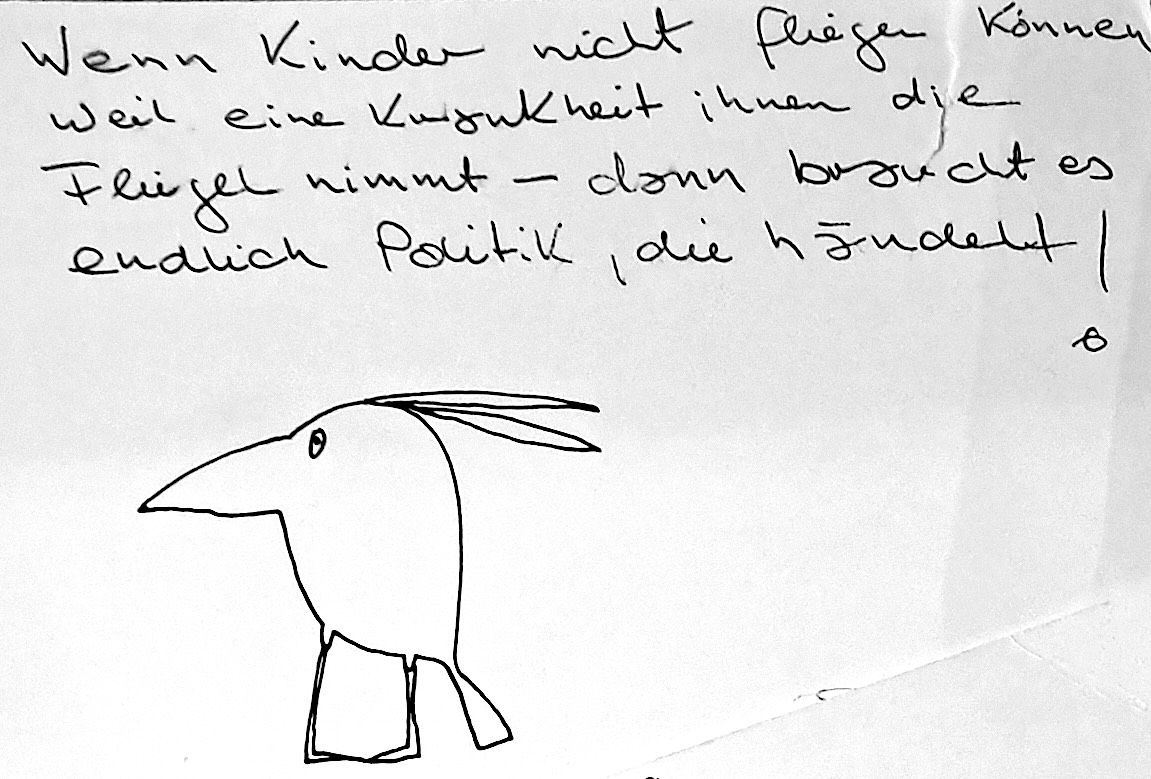 Wenn Kinder nicht fliegen können
weil eine Krankheit ihnen die
Flügel nimmt – dann braucht es
endlich Politik, die handelt!